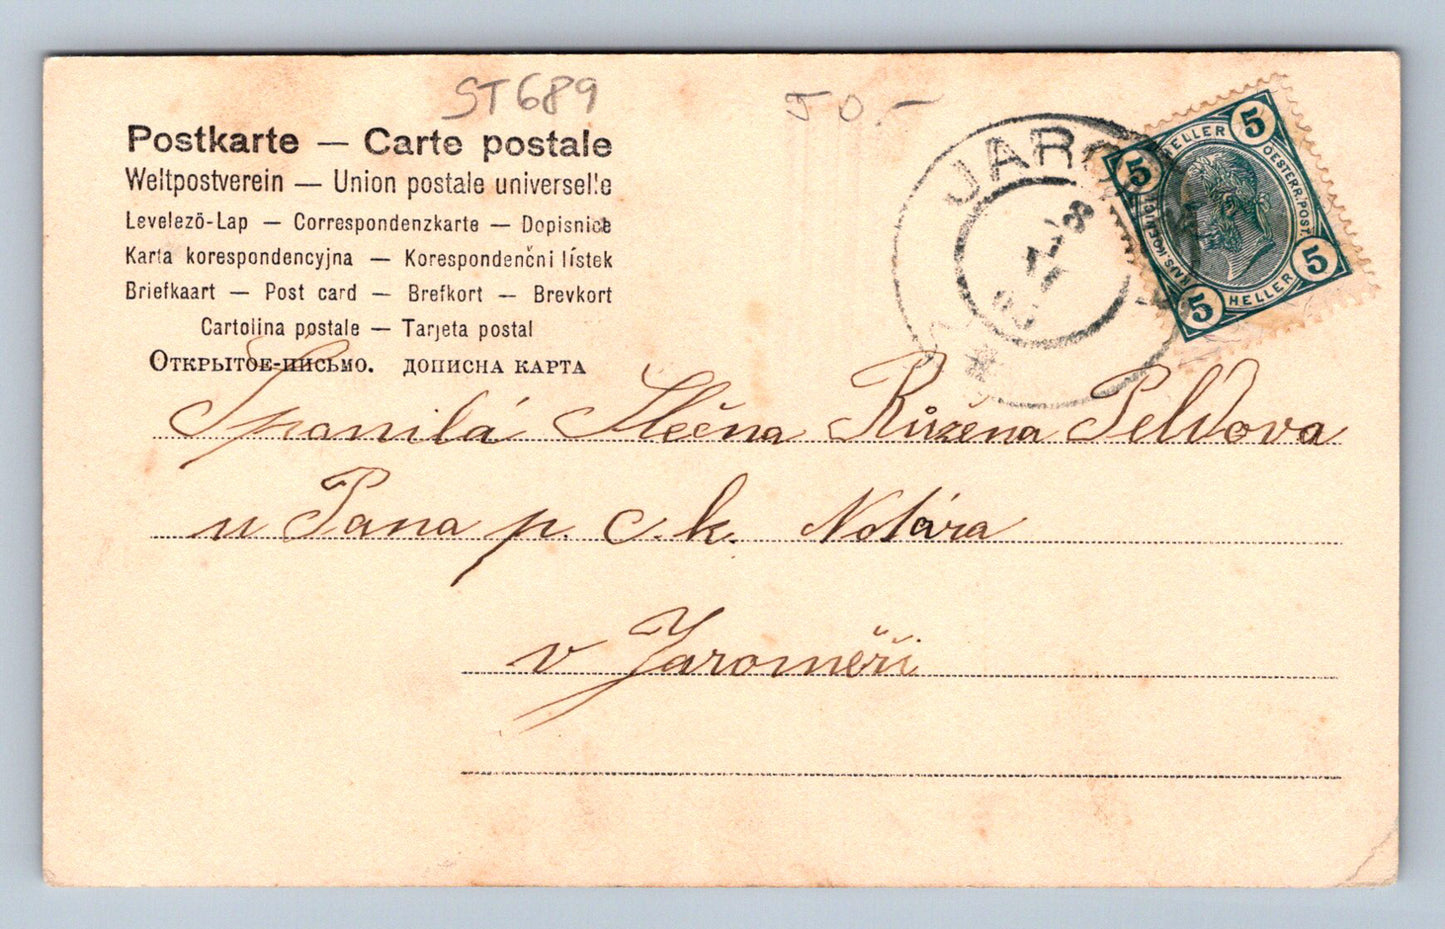 ST689
50.-
Postkarte — Carte postale
Weltpostverein — Union postale universelle
Levelező-Lap — Correspondenzkarte — Dopisnice
Karta korespondencyjna — Korespondenční lístek
Briefkaart — Post card — Brefkort — Brevkort
Cartolina postale — Tarjeta postal
Открытое письмо. дописна карта
JARO
8
5 HELLER 5
OESTERR. POST.
KAIS. KOENIGL.
5 HELLER 5
Spanilá Slečna Růžena Peldova
u Pana p. c. k. Notára
v Jaroměři